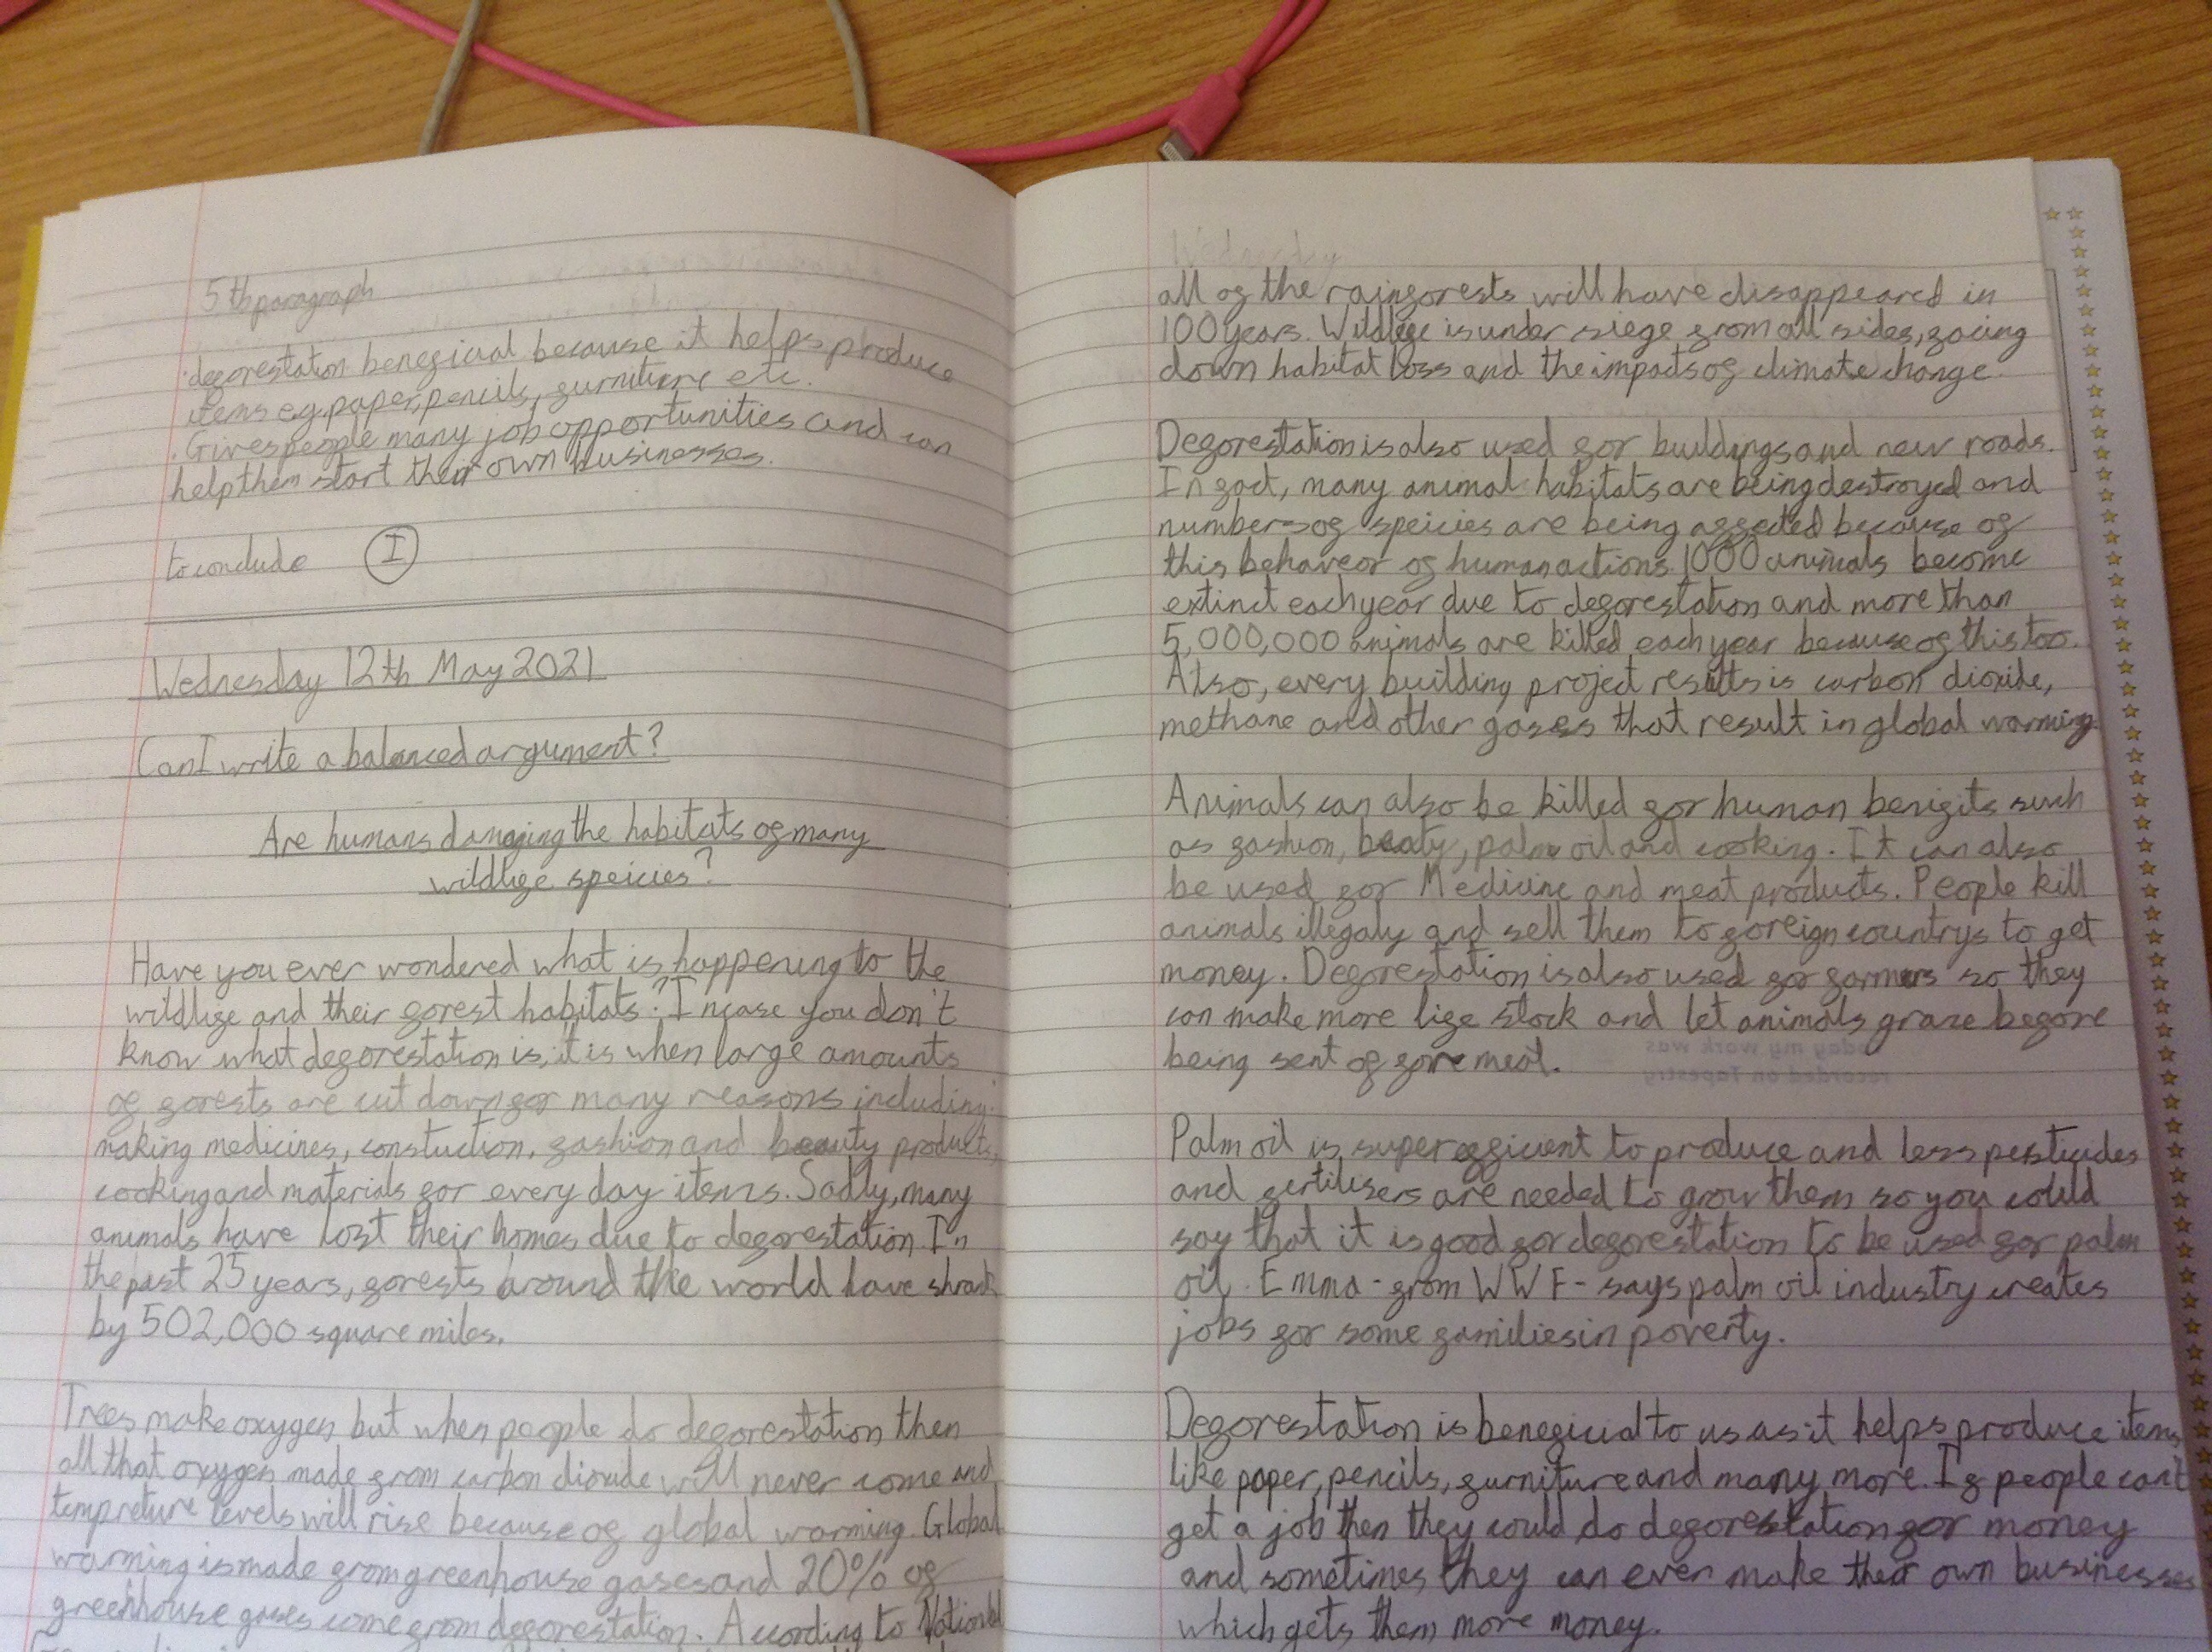 5th paragraph
· deforestation beneficial because it helps produce
items e.g. paper, pencils, furniture etc.
. Gives people many job opportunities and can
help them start their own businesses.
to conclude I
Wednesday 12th May 2021
Can I write a balanced argument?
Are humans damaging the habitats of many
wildlife speicies?
Have you ever wondered what is happening to the
wildlife and their forest habitats? Incase you don't
know what deforestation is, it is when large amounts
of forests are cut down for many reasons including:
making medicines, constuction, fashion and beauty products,
cooking and materials for every day items. Sadly, many
animals have lost their homes due to deforestation. In
the past 25 years, forests around the world have shrank
by 502,000 square miles.
Trees make oxygen but when people do deforestation then
all that oxygen made from carbon dioxide will never come and
tempreture levels will rise because of global warming. Global
warming is made from greenhouse gases and 20% of
greenhouse gases come from deforestation. According to National
Wednesday
all of the rainforests will have disappeared in
100 years. Wildlife is under siege from all sides, facing
down habitat loss and the impacts of climate change.
Deforestation is also used for buildings and new roads.
In fact, many animal habitats are being destroyed and
numbers of speicies are being affected because of
this behaveor of human actions. 1000 animals become
extinct each year due to deforestation and more than
5,000,000 animals are killed each year because of this too.
Also, every building project results is carbon dioxide,
methane and other gases that result in global warming.
Animals can also be killed for human benifits such
as fashion, beaty, palm oil and cooking. It can also
be used for Medicine and meat products. People kill
animals illegaly and sell them to foreign countrys to get
money. Deforestation is also used for farmers so they
can make more life stock and let animals graze before
being sent of fore meat.
today my work was
recorded on Tapestry
Palm oil is super efficient to produce and less pesticides
and fertilisers are needed to grow them so you could
say that it is good for deforestation to be used for palm
oil. Emma - from WWF - says palm oil industry creates
jobs for some families in poverty.
Deforestation is beneficial to us as it helps produce items
like paper, pencils, furniture and many more. If people can't
get a job then they could do deforestation for money
and sometimes they can even make their own businesses
which gets them more money.